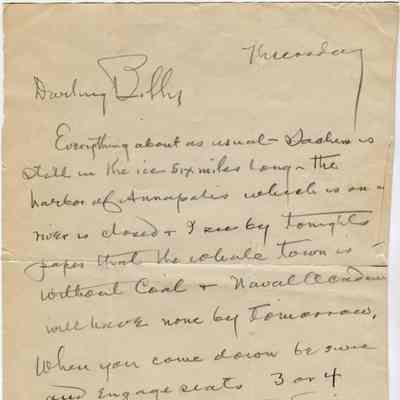 Thursday
Darling Billy
Everything about as usual - is
still in the ice six miles long - the
harbor of Annapolis which is on a
river is closed & I see by tonights
paper that the whole town is
without Coal & Naval Academy
will have none by tomorrow.
When you come down be sure
and Engage seats 3 or 4